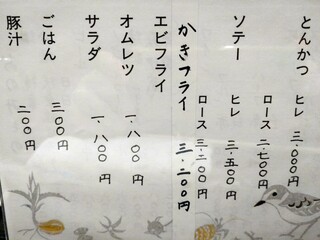 とんかつ
ヒレ 三・〇〇〇円
ロース 二・七〇〇円
ソテー
ヒレ 三・五〇〇円
ロース 三・二〇〇円
かきフライ 三・二〇〇円
エビフライ
オムレツ 一・八〇〇円
サラダ 一・八〇〇円
ごはん 三〇〇円
豚汁 二〇〇円